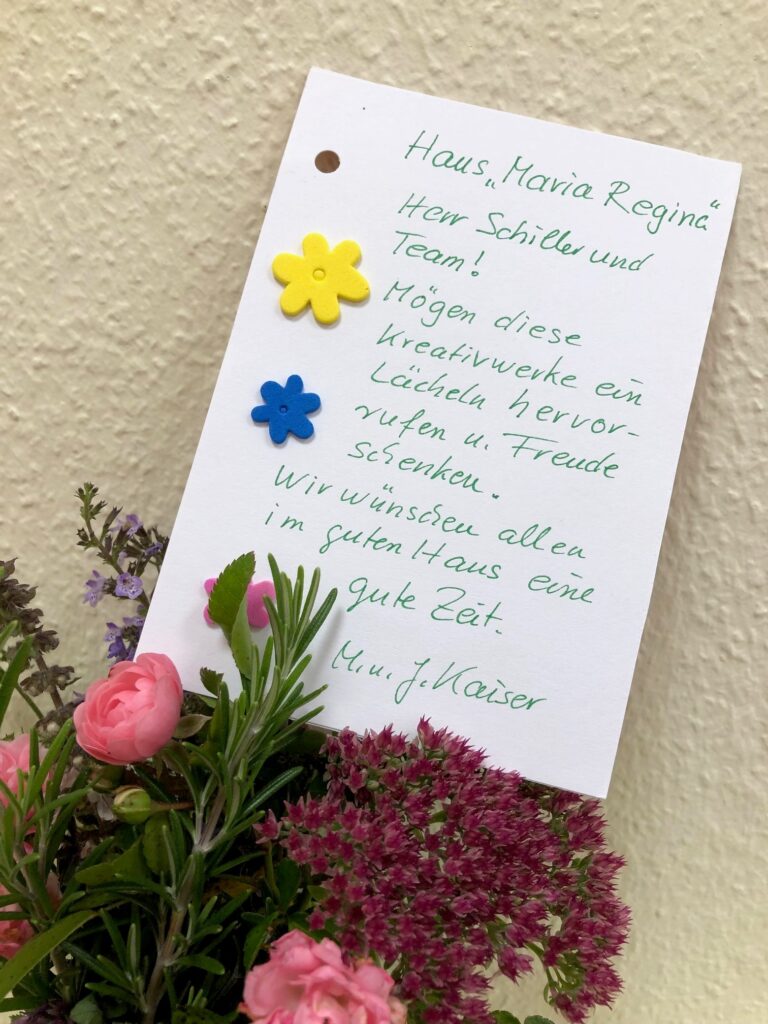 Haus „Maria Regina“
Herr Schiller und
Team!
Mögen diese
Kreativwerke ein
Lächeln hervor-
rufen u. Freude
schenken.
Wir wünschen allen
im guten Haus eine
gute Zeit.
M. u. J. Kaiser